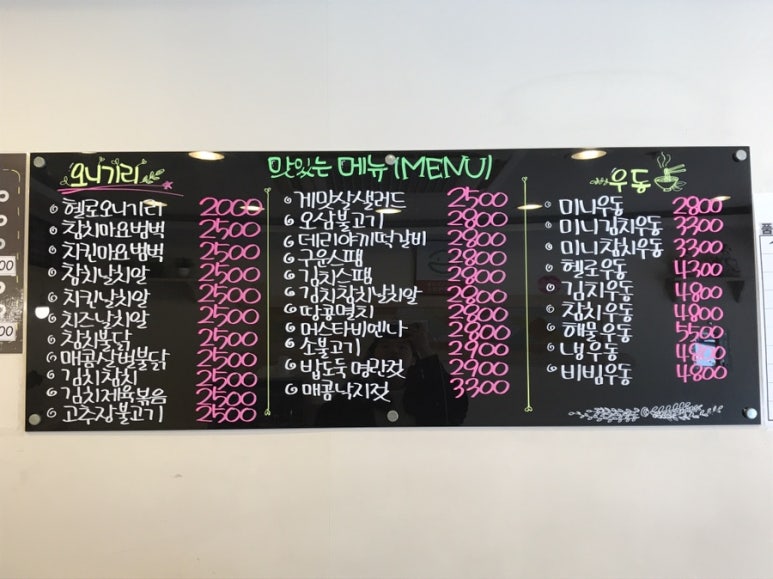 맛있는 메뉴 (MENU)
오니기리
헬로오니기리 2000
참치마요범벅 2500
치킨마요범벅 2500
참치날치알 2500
치킨날치알 2500
치즈날치알 2500
참치불닭 2500
매콤삼벌불닭 2500
김치참치 2500
김치제육볶음 2500
고추장불고기 2500
게맛살샐러드 2500
오삼불고기 2800
데리야끼떡갈비 2800
구운스팸 2800
김치스팸 2800
김치참치날치알 2800
땅콩멸치 2800
머스타비엔나 2800
소불고기 2900
밥도둑 명란젓 2900
매콤낙지젓 3300
우동
미니우동 2800
미니김치우동 3300
미니참치우동 3300
헬로우동 4300
김치우동 4800
참치우동 4800
해물우동 5500
냉우동 4800
비빔우동 4800